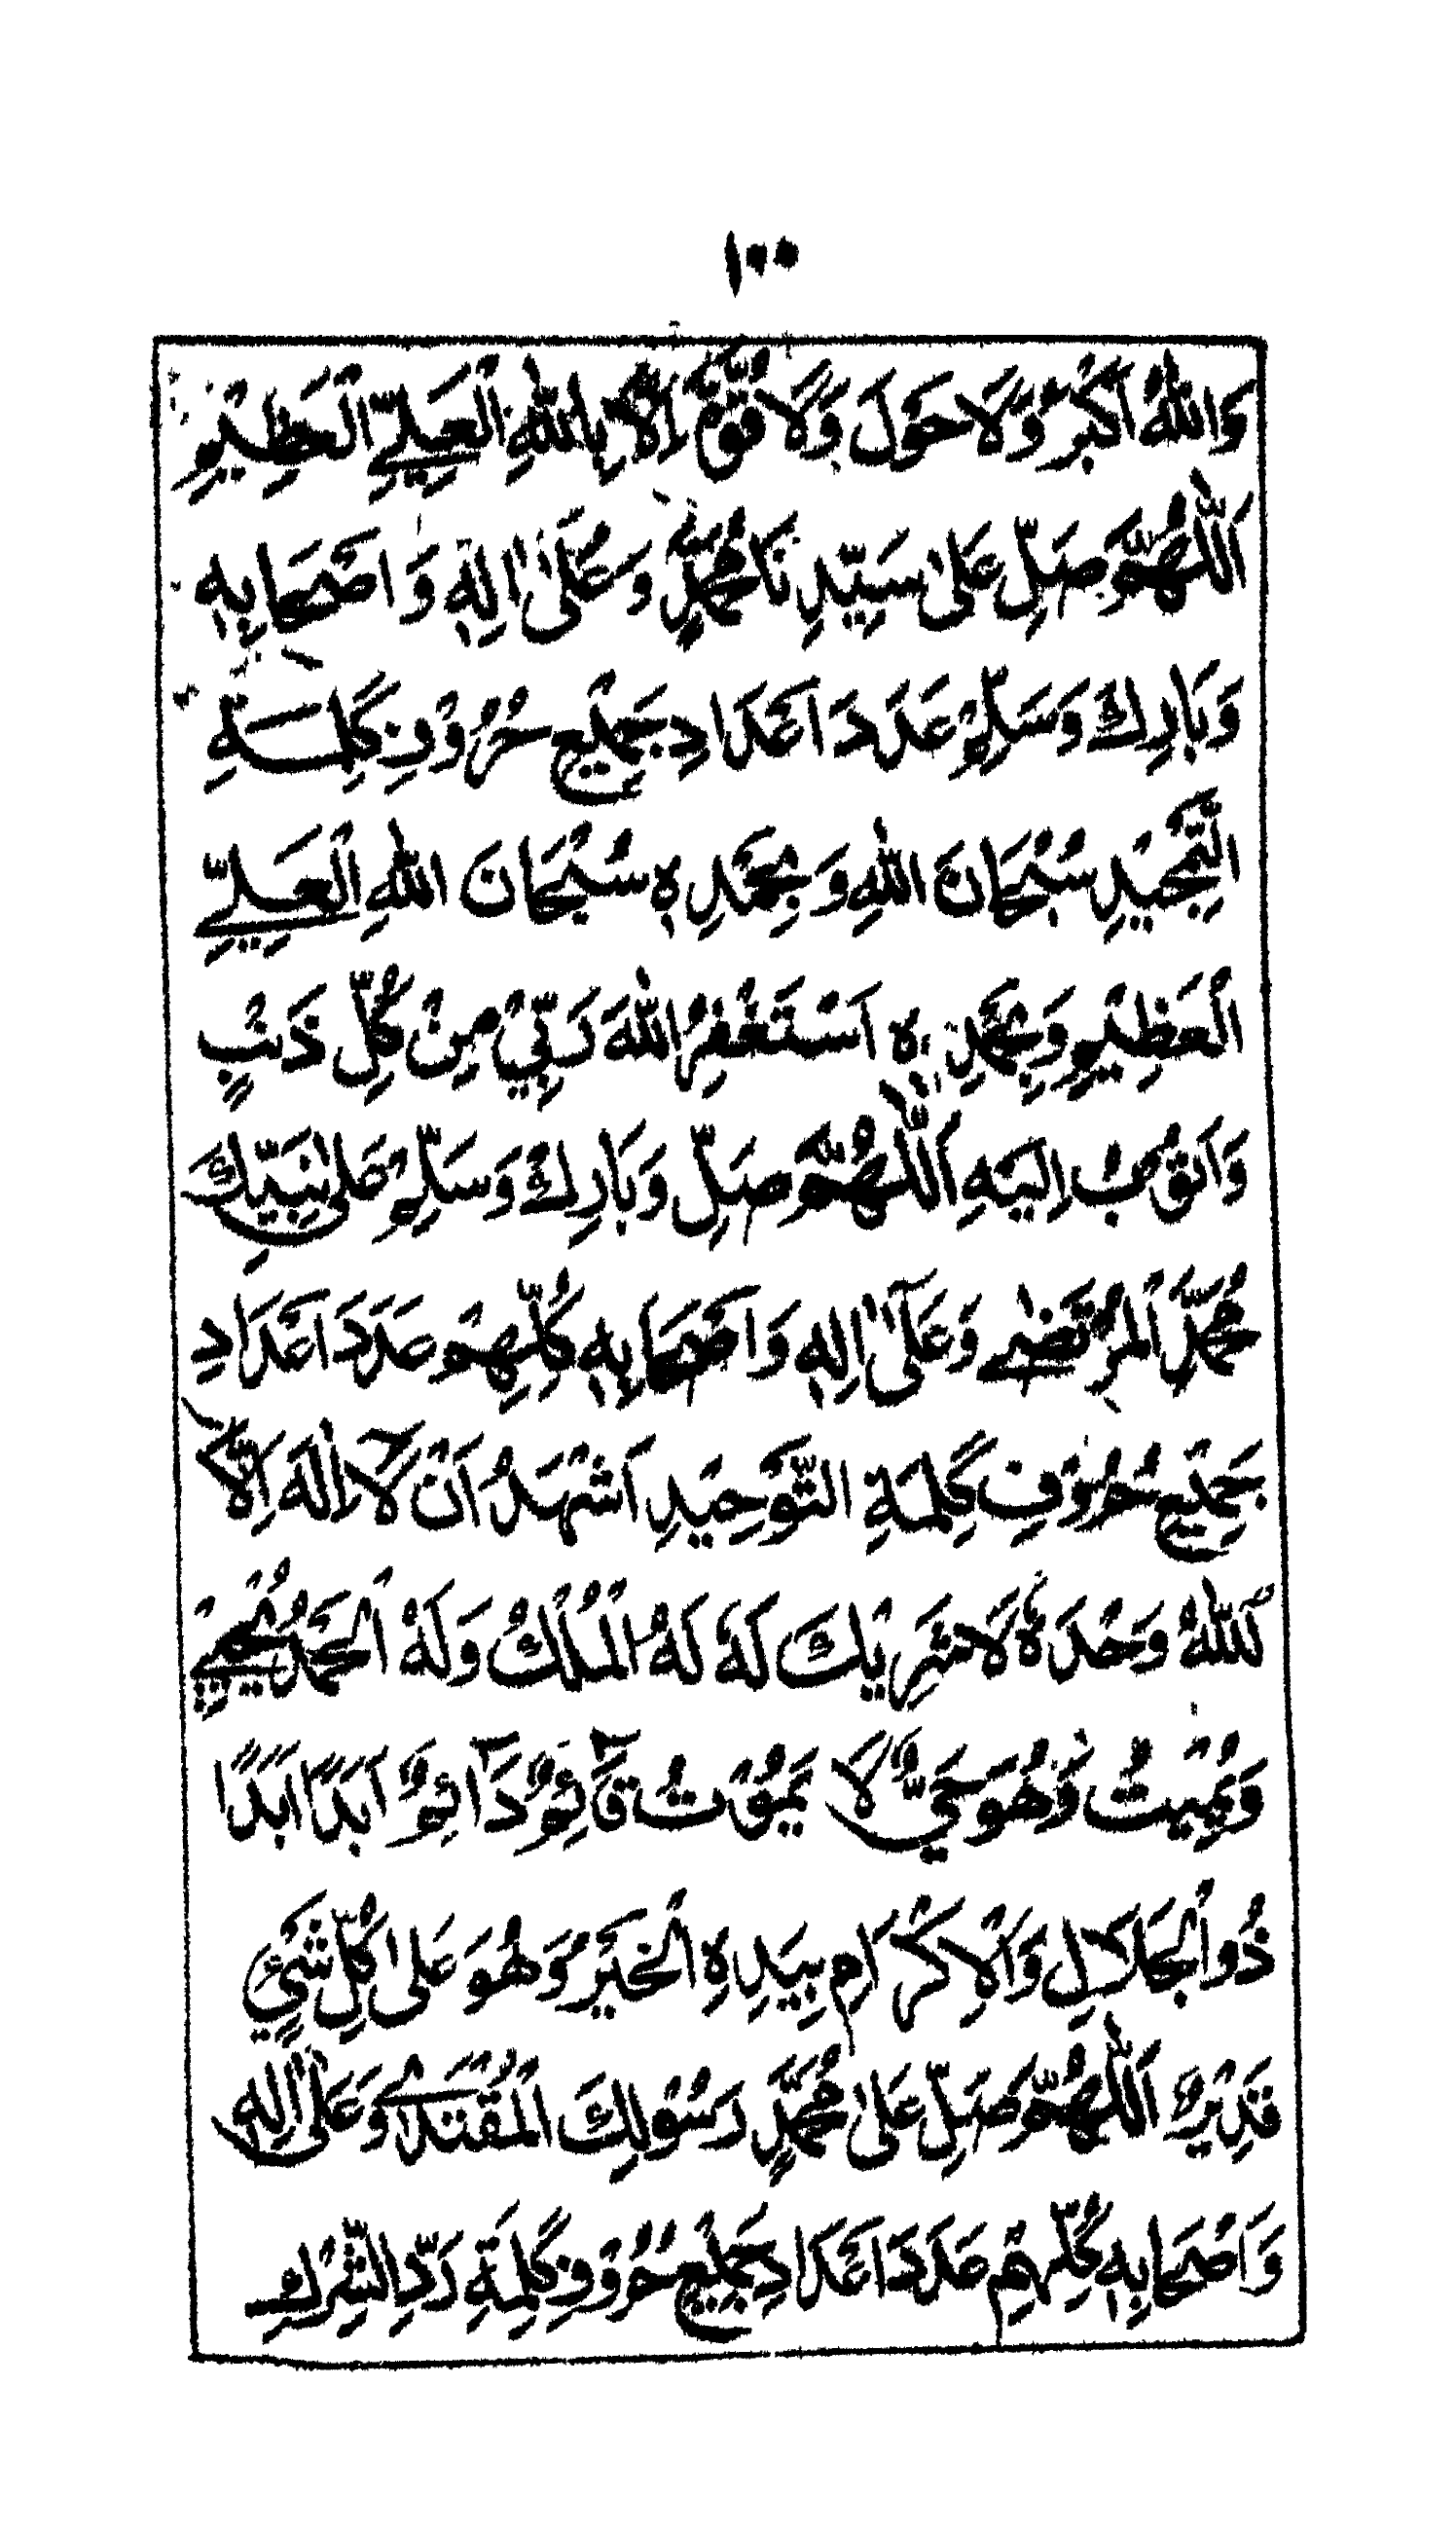 ١٠٠
وَاللّٰهُ اَكْبَرُ وَلَا حَوْلَ وَلَا قُوَّةَ اِلَّا بِاللّٰهِ الْعَلِيِّ الْعَظِيْمِ
اَللّٰهُمَّ صَلِّ عَلٰى سَيِّدِنَا مُحَمَّدٍ وَعَلٰٓى اٰلِهٖ وَاَصْحَابِهٖ
وَبَارِكْ وَسَلِّمْ عَدَدَ اَعْدَادِ جَمِيْعِ حُرُوْفِ كَلِمَةِ
التَّمْجِيْدِ سُبْحَانَ اللّٰهِ وَبِحَمْدِهٖ سُبْحَانَ اللّٰهِ الْعَلِيِّ
الْعَظِيْمِ وَبِحَمْدِهٖ اَسْتَغْفِرُ اللّٰهَ رَبِّيْ مِنْ كُلِّ ذَنْبٍ
وَاَتُوْبُ اِلَيْهِ اَللّٰهُمَّ صَلِّ وَبَارِكْ وَسَلِّمْ عَلٰى نَبِيِّكَ
مُحَمَّدِ الْمُرْتَضٰى وَعَلٰٓى اٰلِهٖ وَاَصْحَابِهٖ كُلِّهِمْ عَدَدَ اَعْدَادِ
جَمِيْعِ حُرُوْفِ كَلِمَةِ التَّوْحِيْدِ اَشْهَدُ اَنْ لَّآ اِلٰهَ اِلَّا
اللّٰهُ وَحْدَهٗ لَا شَرِيْكَ لَهٗ لَهُ الْمُلْكُ وَلَهُ الْحَمْدُ يُحْيِيْ
وَيُمِيْتُ وَهُوَ حَيٌّ لَّا يَمُوْتُ قَآئِمٌ دَآئِمٌ اَبَدًا اَبَدًا
ذُو الْجَلَالِ وَالْاِكْرَامِ بِيَدِهِ الْخَيْرُ وَهُوَ عَلٰى كُلِّ شَيْءٍ
قَدِيْرٌ اَللّٰهُمَّ صَلِّ عَلٰى مُحَمَّدٍ رَسُوْلِكَ الْمُقْتَدٰى وَعَلٰٓى اٰلِهٖ
وَاَصْحَابِهٖ كُلِّهِمْ عَدَدَ اَعْدَادِ جَمِيْعِ حُرُوْفِ كَلِمَةِ رَدِّ الشِّرْكِ